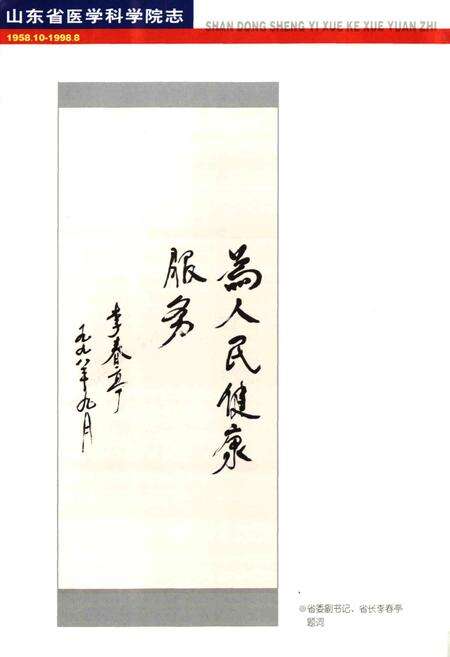 山东省医学科学院志
SHAN DONG SHENG YI XUE KE XUE YUAN ZHI
1958.10-1998.8
為人民健康
服务
李春亭
一九九八年九月
◎省委副书记、省长李春亭
题词